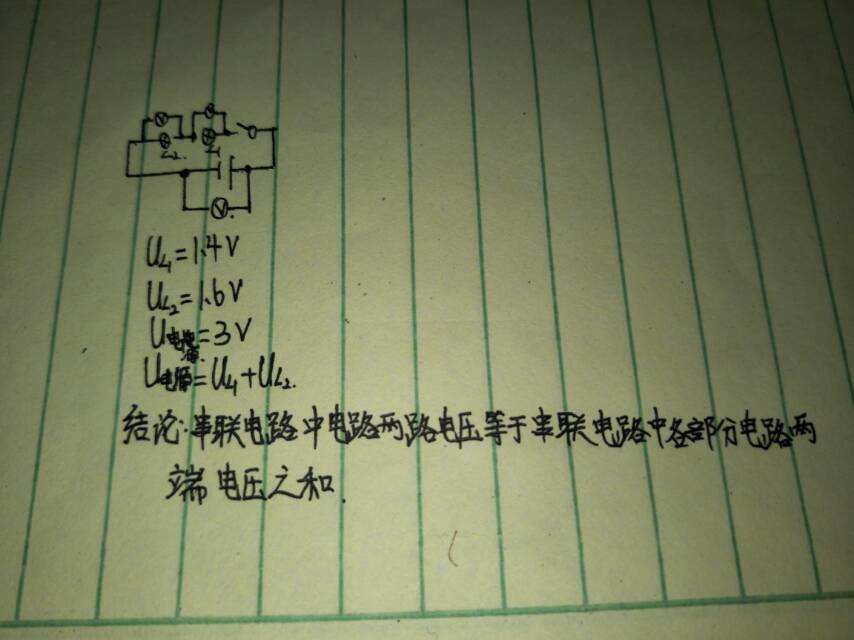 V V
L₂. L
V
U_L₁=1.4V
U_L₂=1.6V
U电源=3V
U电源=U_L₁+U_L₂.
结论:串联电路中电路两路电压等于串联电路中各部分电路两
端电压之和.